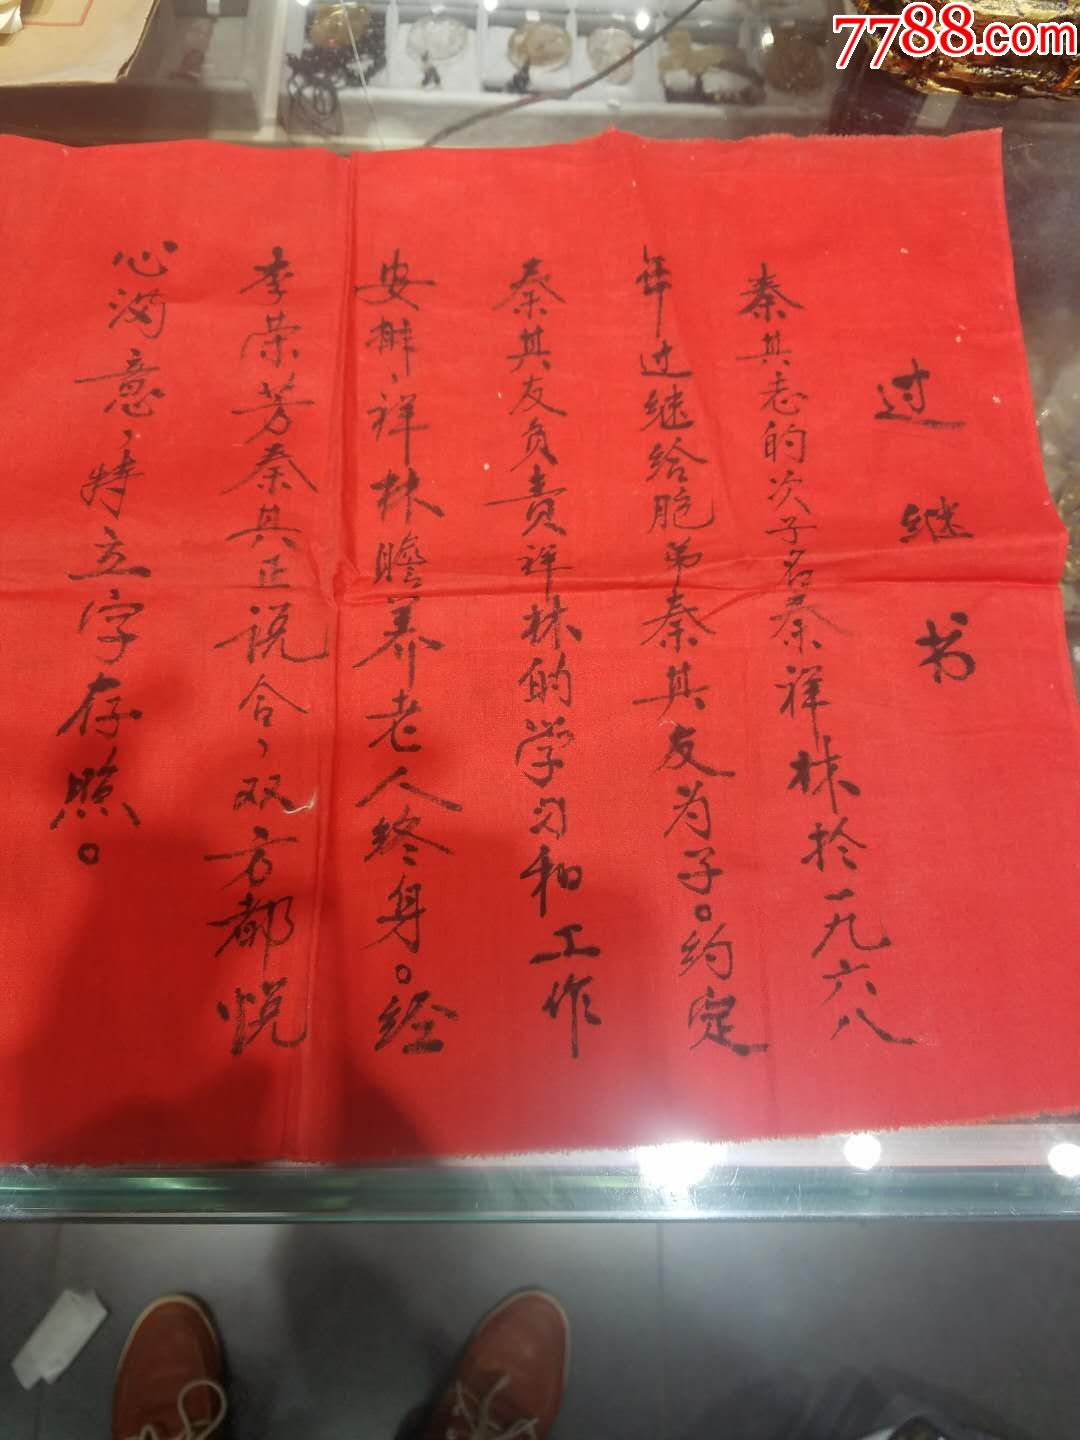 7788.com
过继书
秦其志的次子名秦祥林於一九六八
年过继给胞弟秦其友为子。约定
秦其友负责祥林的学习和工作
安排，祥林赡养老人终身。经
李荣芳秦其正说合，双方都悦
心满意，特立字存照。